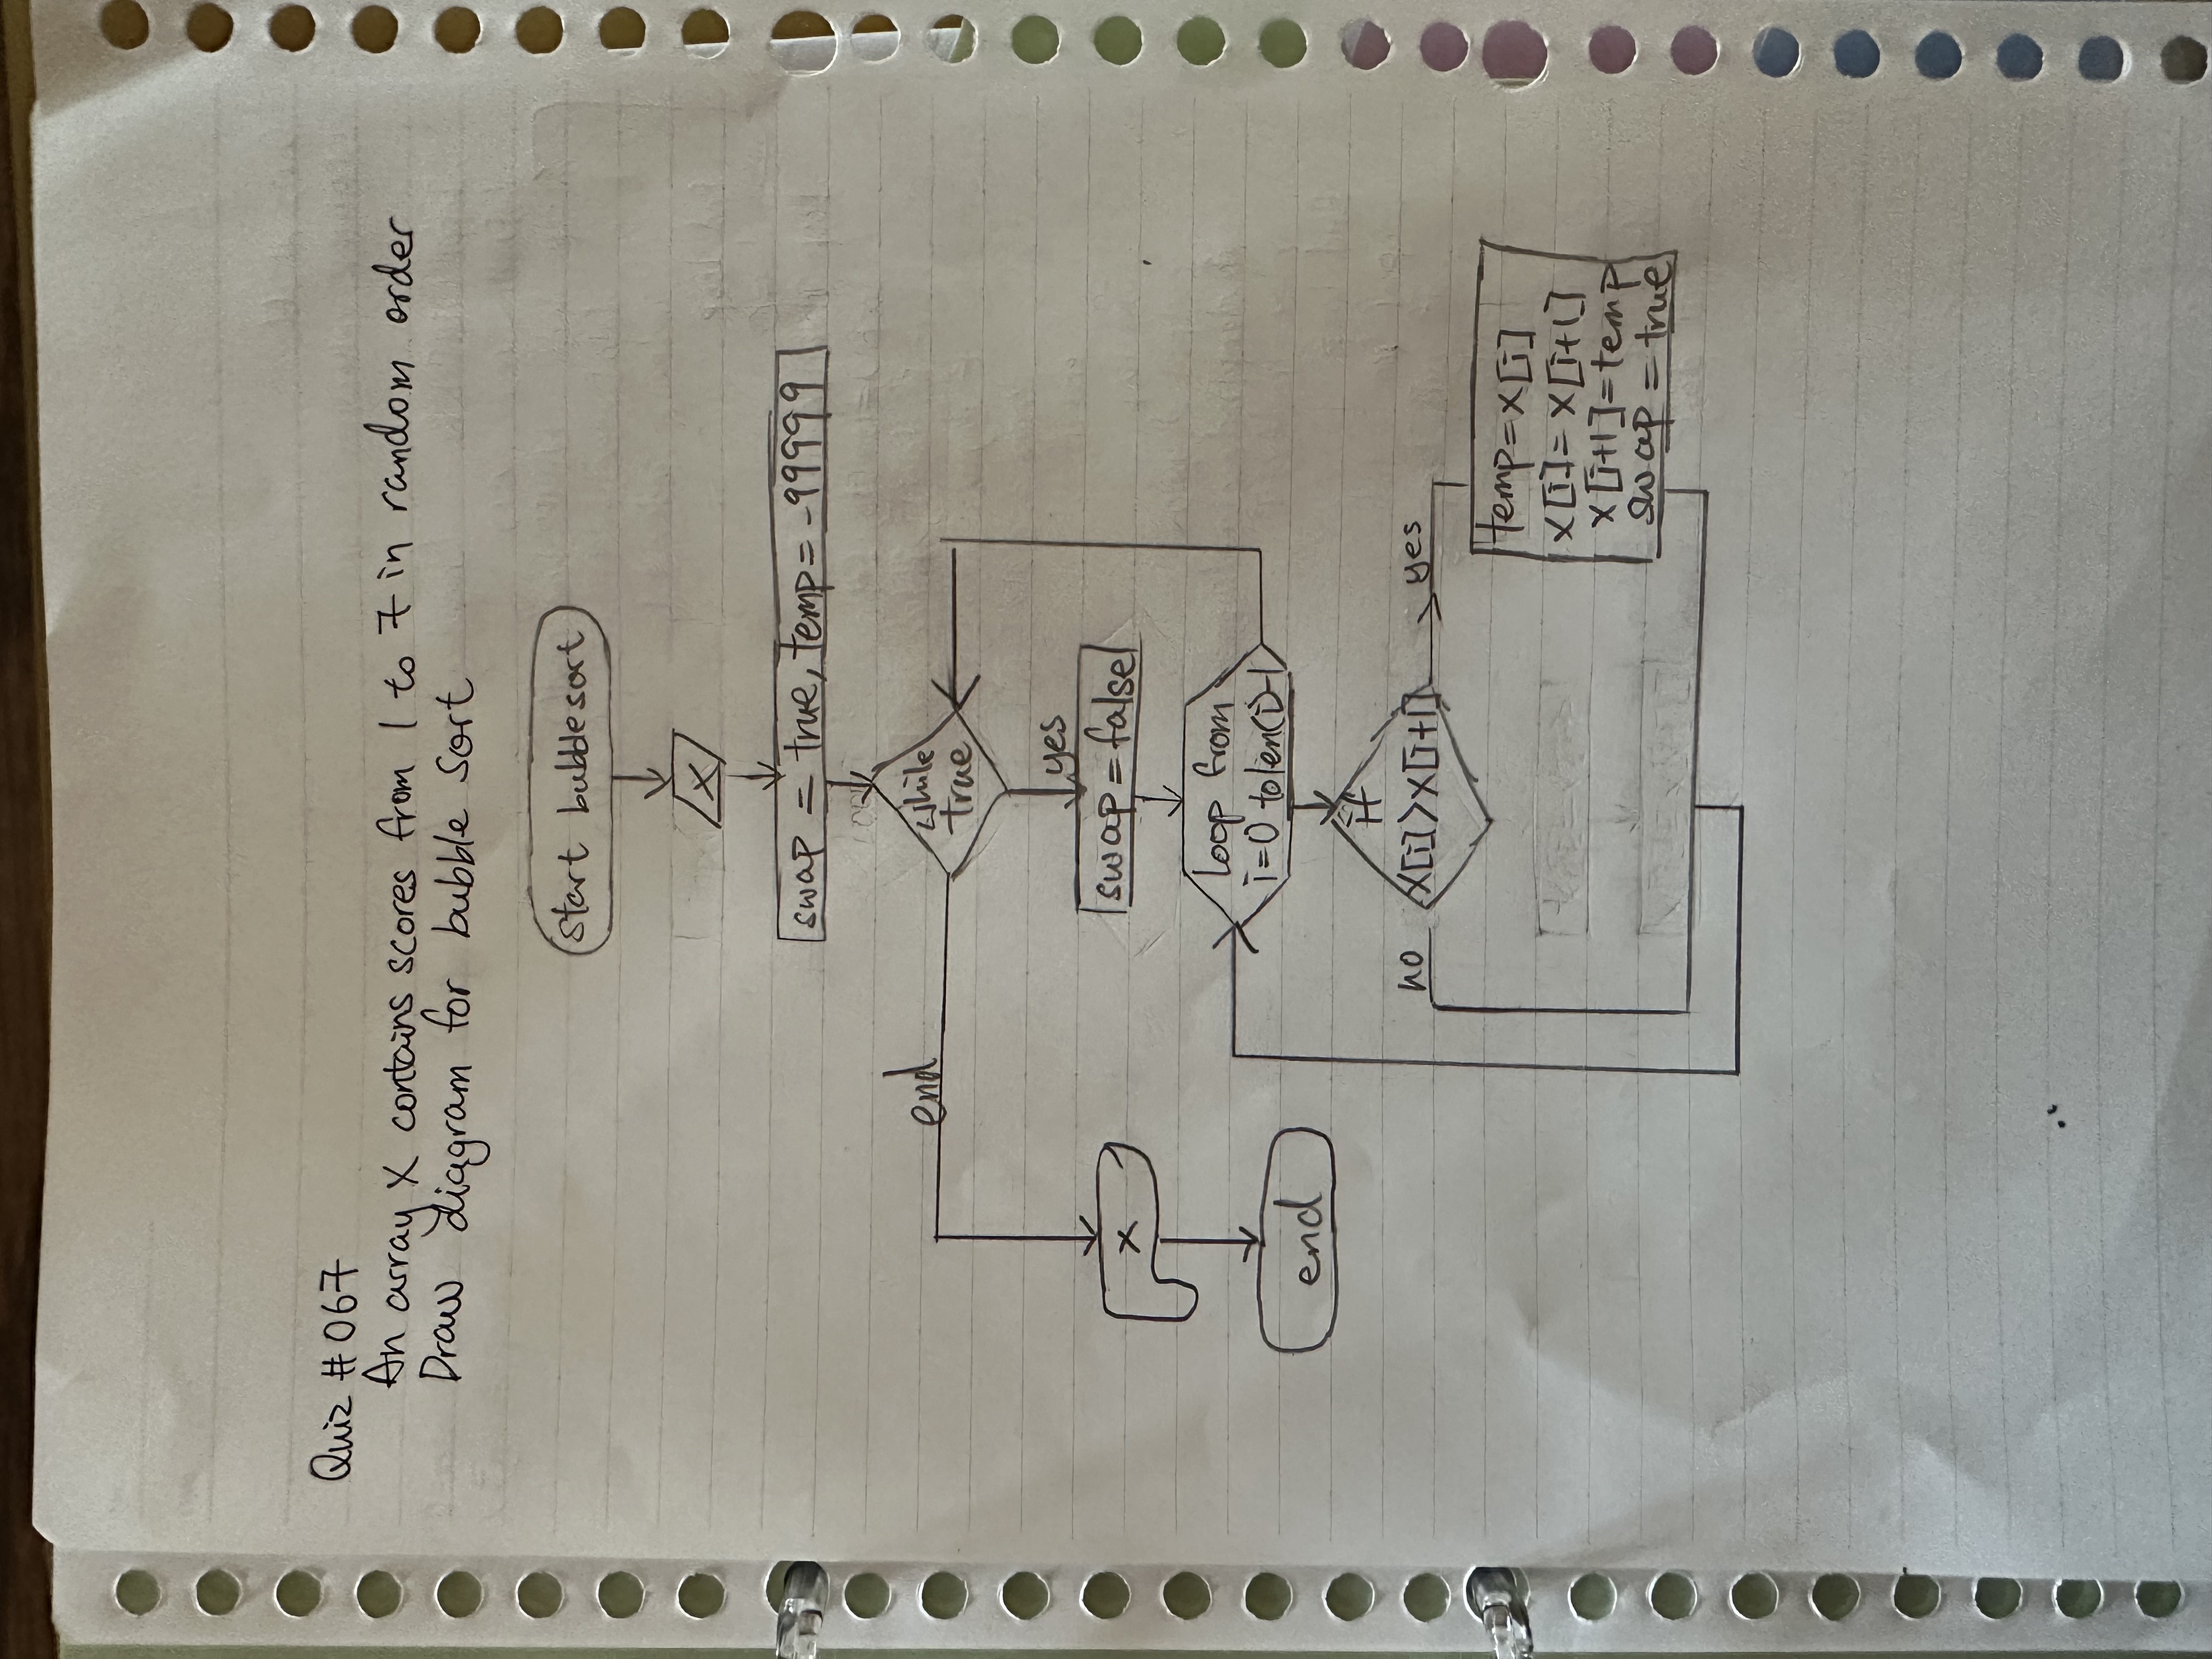 Quiz #067
An array X contains scores from 1 to 7 in random order
Draw diagram for bubble sort
start bubblesort
X
swap = true, temp = -99999
while
true
end
yes
swap = false
X
end
loop from
i=0 to len(i)-1
if
X[i]>X[i+1]
no
yes
temp=X[i]
X[i]=X[i+1]
X[i+1]=temp
swap = true